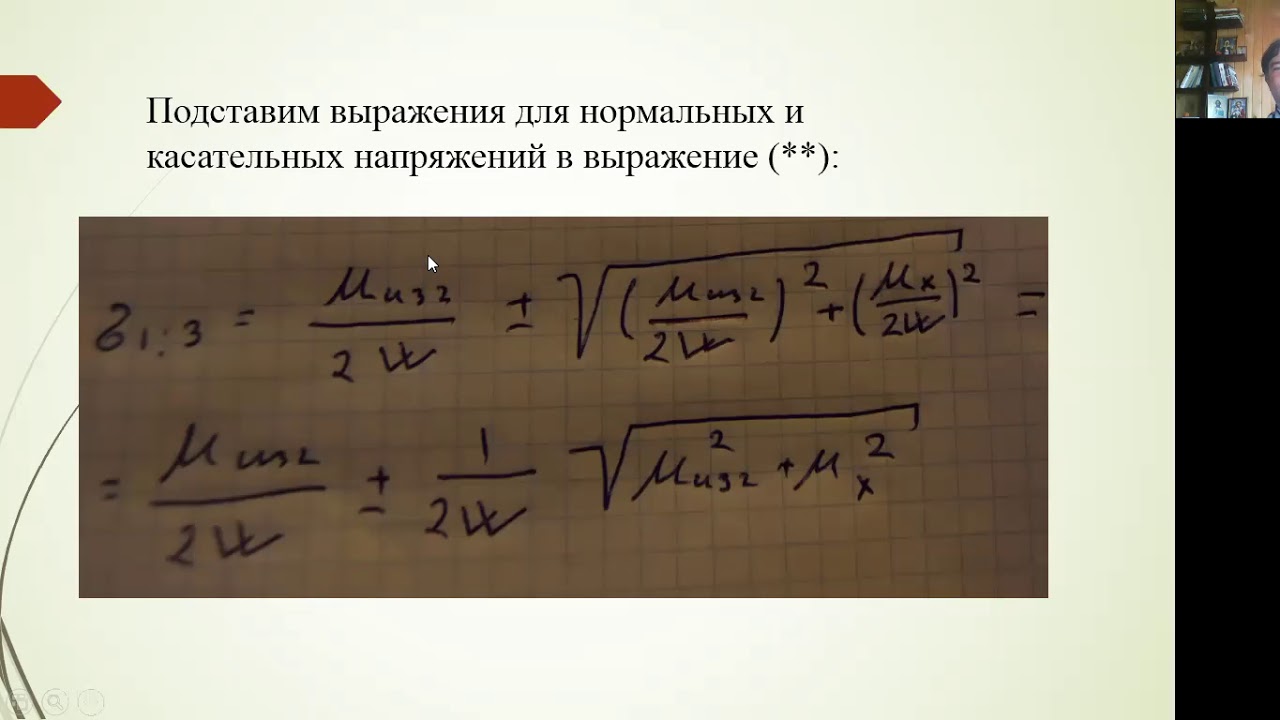 Подставим выражения для нормальных и
касательных напряжений в выражение (**):
σ₁;₃ = Mизг / 2W ± √((Mизг / 2W)² + (Mx / 2W)²) =
= Mизг / 2W ± 1 / 2W √(Mизг² + Mx²)